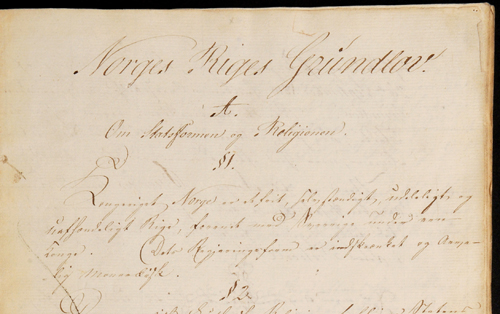 Norges Riges Grundlov.
A.
Om Statsformen og Religionen.
§1.
Kongeriget Norge er et frit, selvstændigt, udeleligt og
uafhændeligt Rige, forenet med Sverrige under een
Konge. Dets Regjeringsform er indskrænket og arve-
lig monarkisk.
§2
Religion Statens